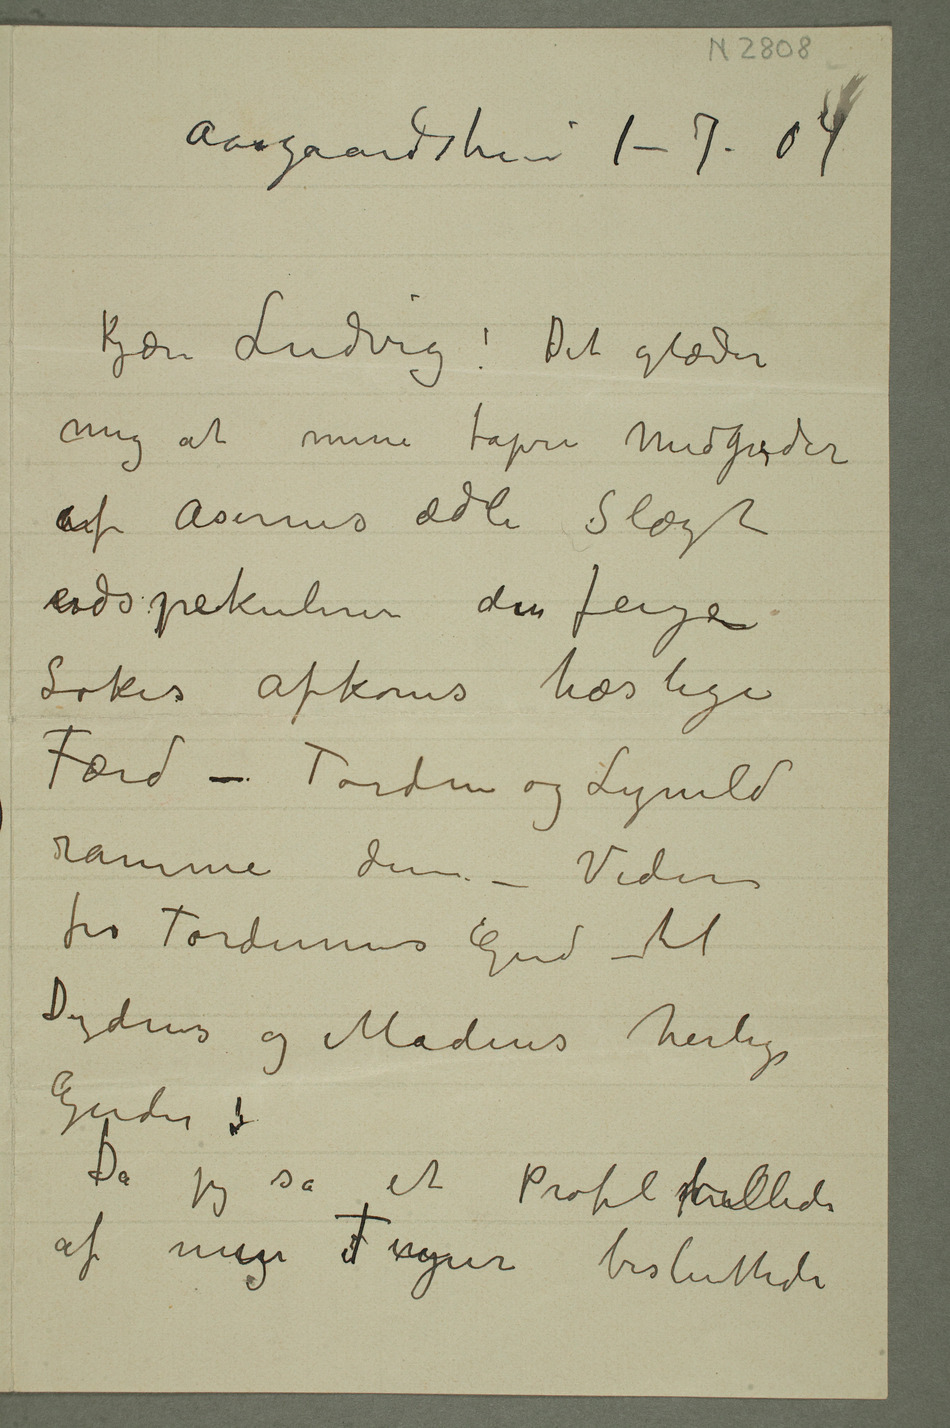 N 2808
Aasgaardstrand 1–7–04
Kjære Ludvig! Det glæder
mig at mine tapre Medguder
af Asernes ædle Slægt
udspekulerer den feige
Lokes afkoms hæslige
Færd – Torden og Lynild
ramme dem. – Viden
fra Tordenens Gud – til
Dydens og Madens herlige
Guder!
Da jeg så et Profilbillede
af min Figur besluttede